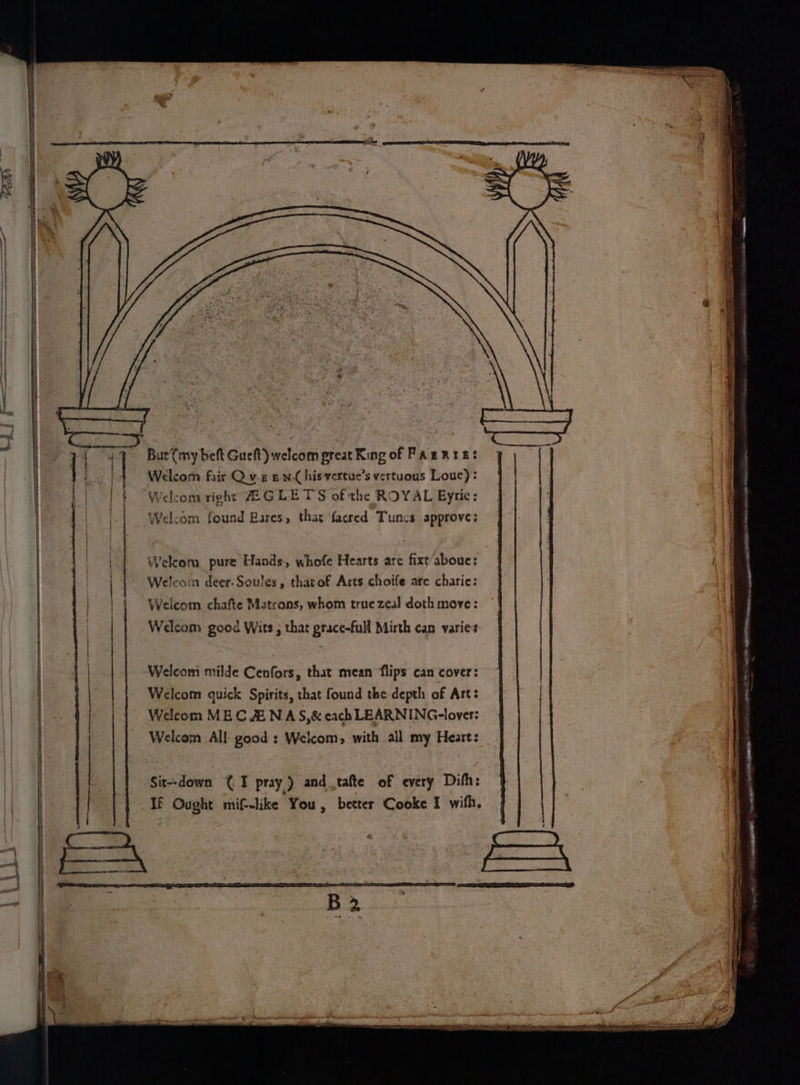 But (my beſt Gueſt) welcom great King of FAERIE:
Welcom fair QVEEN (his vertue's vertuous Loue):
Welcom right ÆGLETS of the ROYAL Eyrie:
Welcom ſound Eares, that ſacred Tunes approve:
Welcom pure Hands, whoſe Hearts are fixt aboue:
Welcom deer-Soules, that of Arts choiſe are charie:
Welcom chaſte Matrons, whom true zeal doth move:
Welcom good Wits, that grace-full Mirth can varie:
Welcom milde Cenſors, that mean ſlips can cover:
Welcom quick Spirits, that ſound the depth of Art:
Welcom MECÆNAS, & each LEARNING-lover:
Welcom All good: Welcom, with all my Heart:
Sit--down (I pray) and taſte of every Diſh:
If Ought miſ--like You, better Cooke I wiſh.
B 2